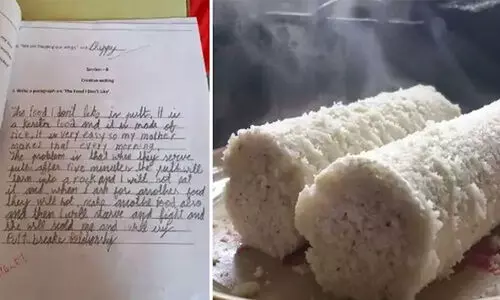 Chippy
Section - B
Creative writing
1. Write a paragraph on 'The Food I Don't Like'.
The food I don't like is putt. It is
a kerala food and it is made of
rice. It is very easy so my mother
makes that every morning.
The problem is that when they serve
putt after five minutes the putt will
turn into a rock and I will not eat
it and when I ask for another food
they will not make another food also
and then I will starve and fight and
she will scold me and I will cry.
Putt breaks relationship